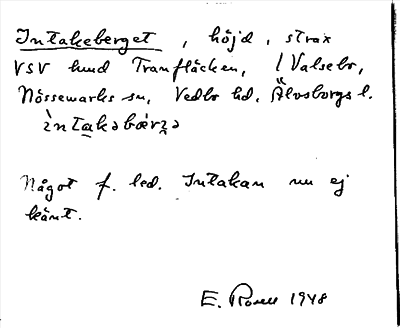 Intakeberget, höjd, strax
VSV hund Tranfläcken, / Valsebo,
Nössemarks sn, Vedbo hd. Älvsborgs l.
ìntakəbær̀ə
Något f. led. Intakan nu ej
känt.
E. Rosell 1948